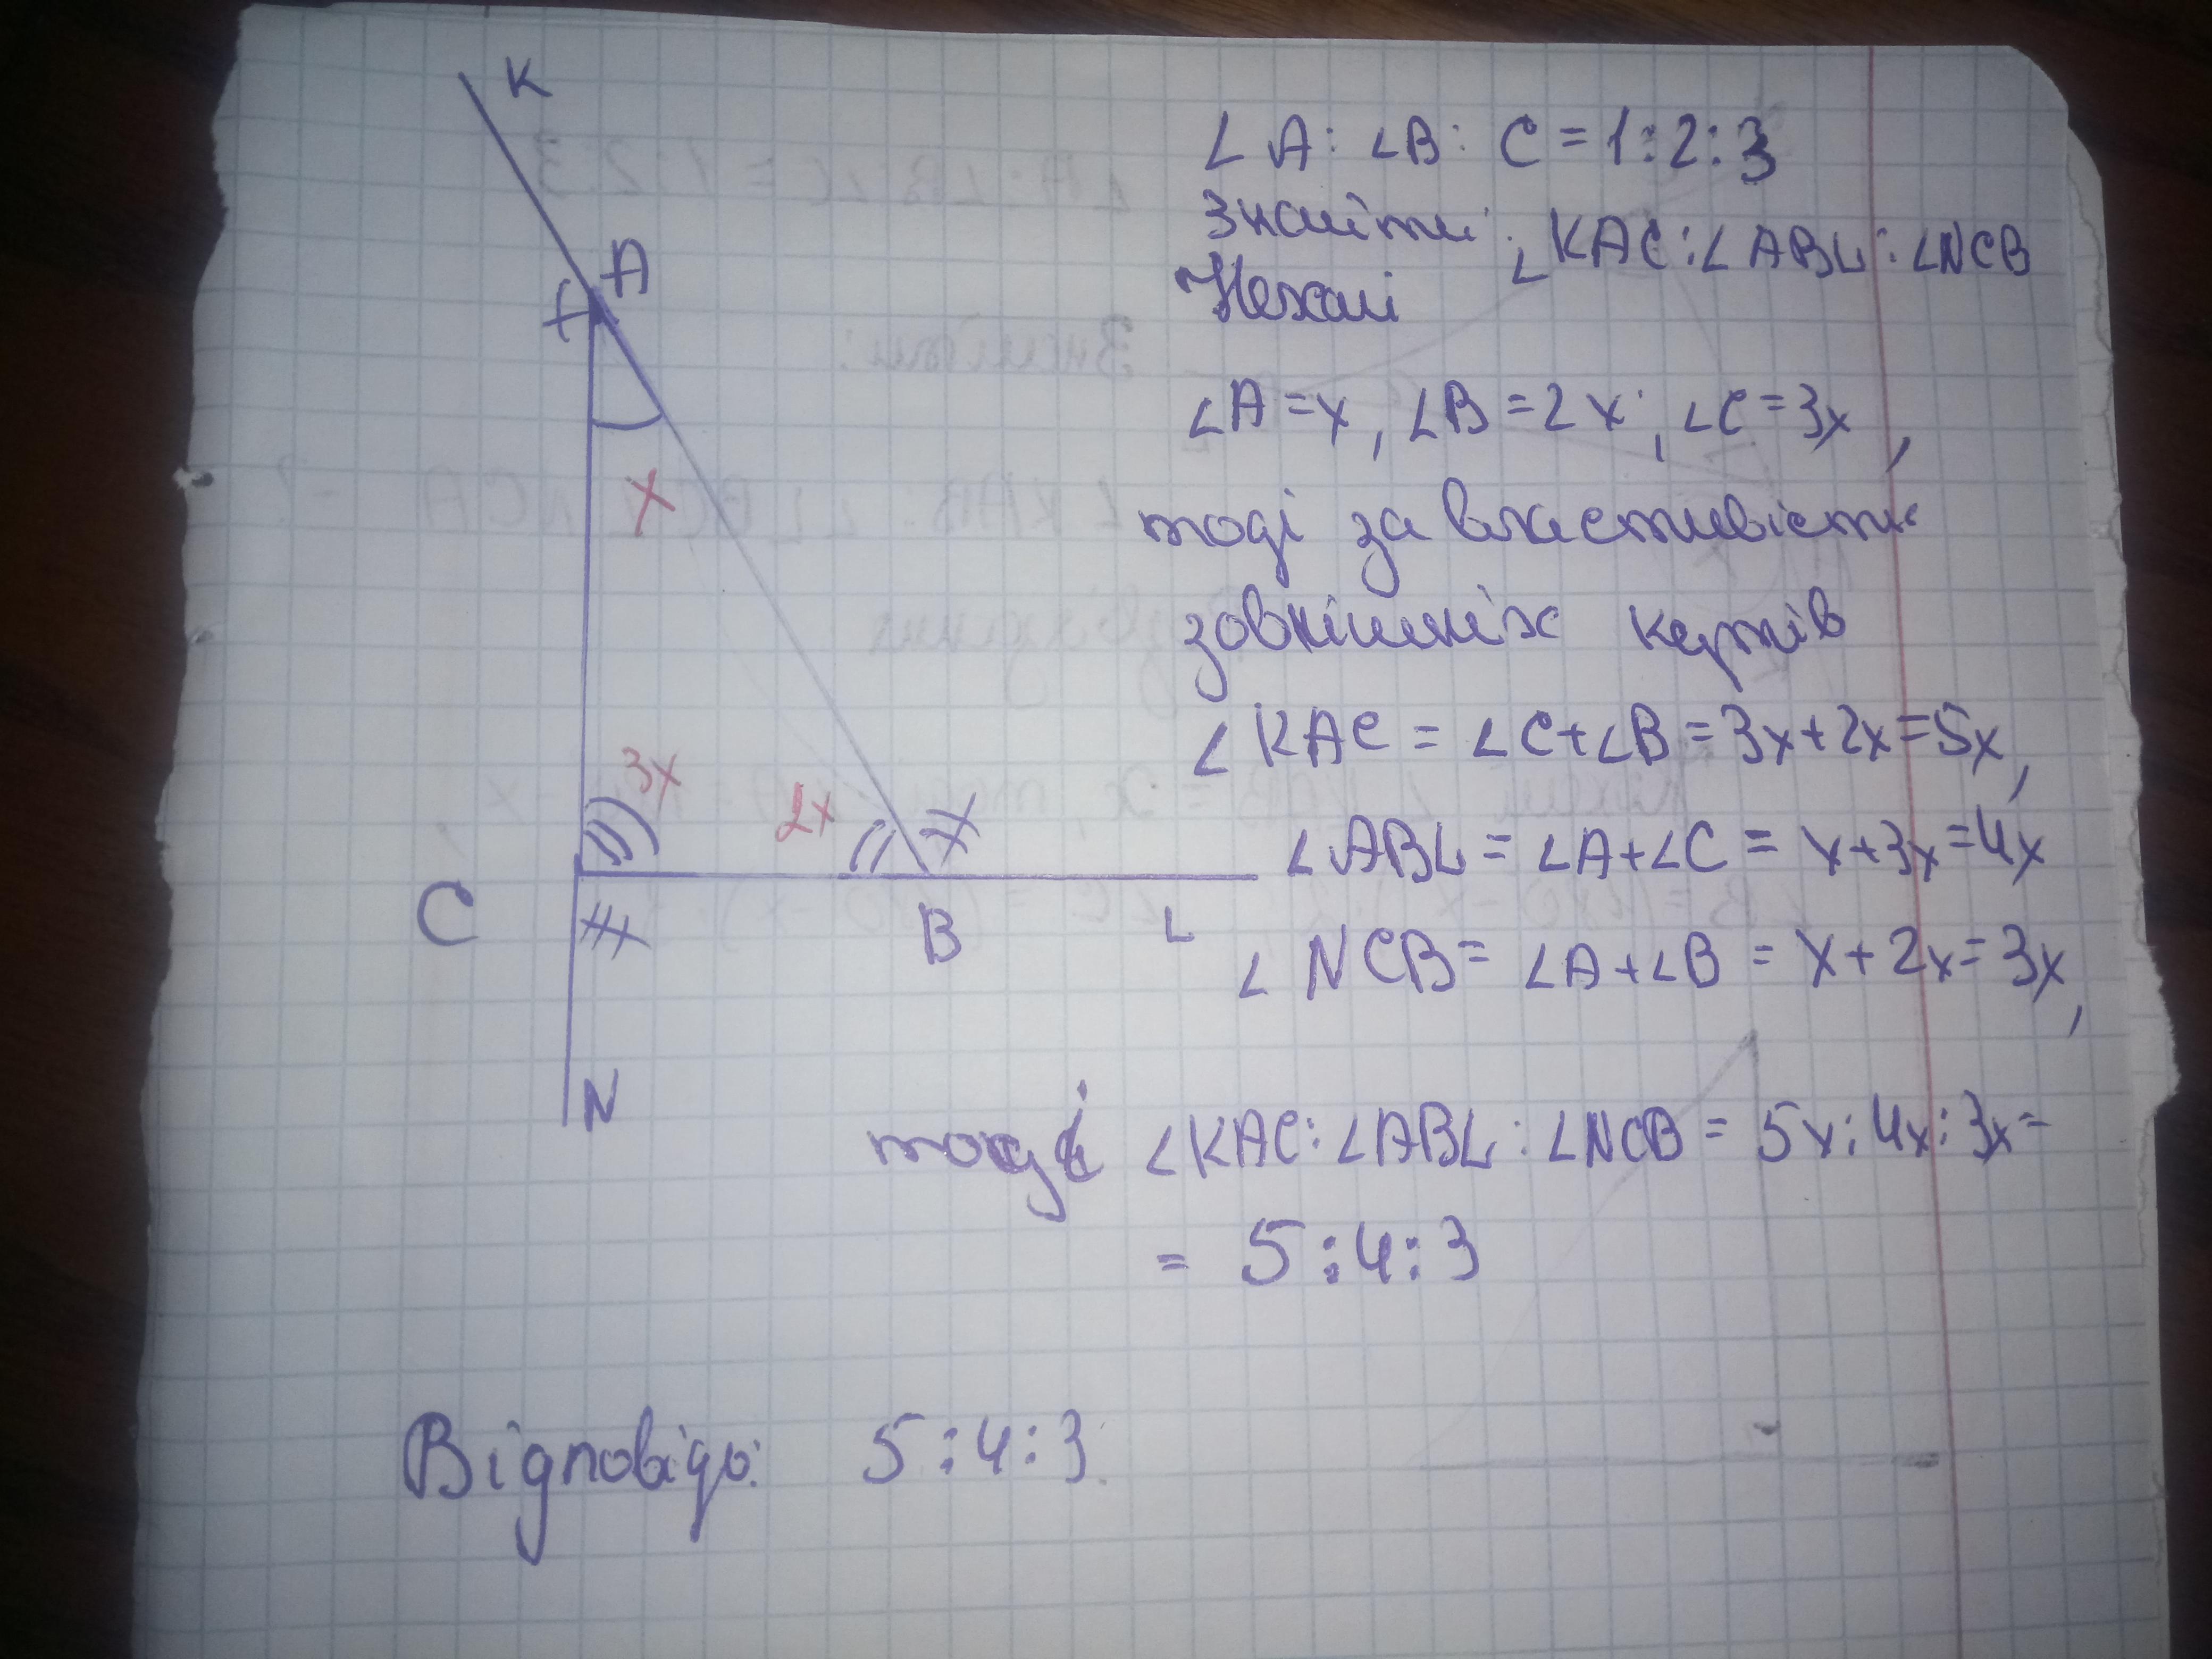 K
A
x
3x
2x
C
B
L
N
∠A : ∠B : C = 1 : 2 : 3
Знайти: ∠KAC : ∠ABL : ∠NCB
Нехай
∠A = x, ∠B = 2x; ∠C = 3x,
тоді за властивістю
зовнішніх кутів
∠KAC = ∠C + ∠B = 3x + 2x = 5x,
∠ABL = ∠A + ∠C = x + 3x = 4x
∠NCB = ∠A + ∠B = x + 2x = 3x,
тоді ∠KAC : ∠ABL : ∠NCB = 5x : 4x : 3x =
= 5 : 4 : 3
Відповідь: 5 : 4 : 3.